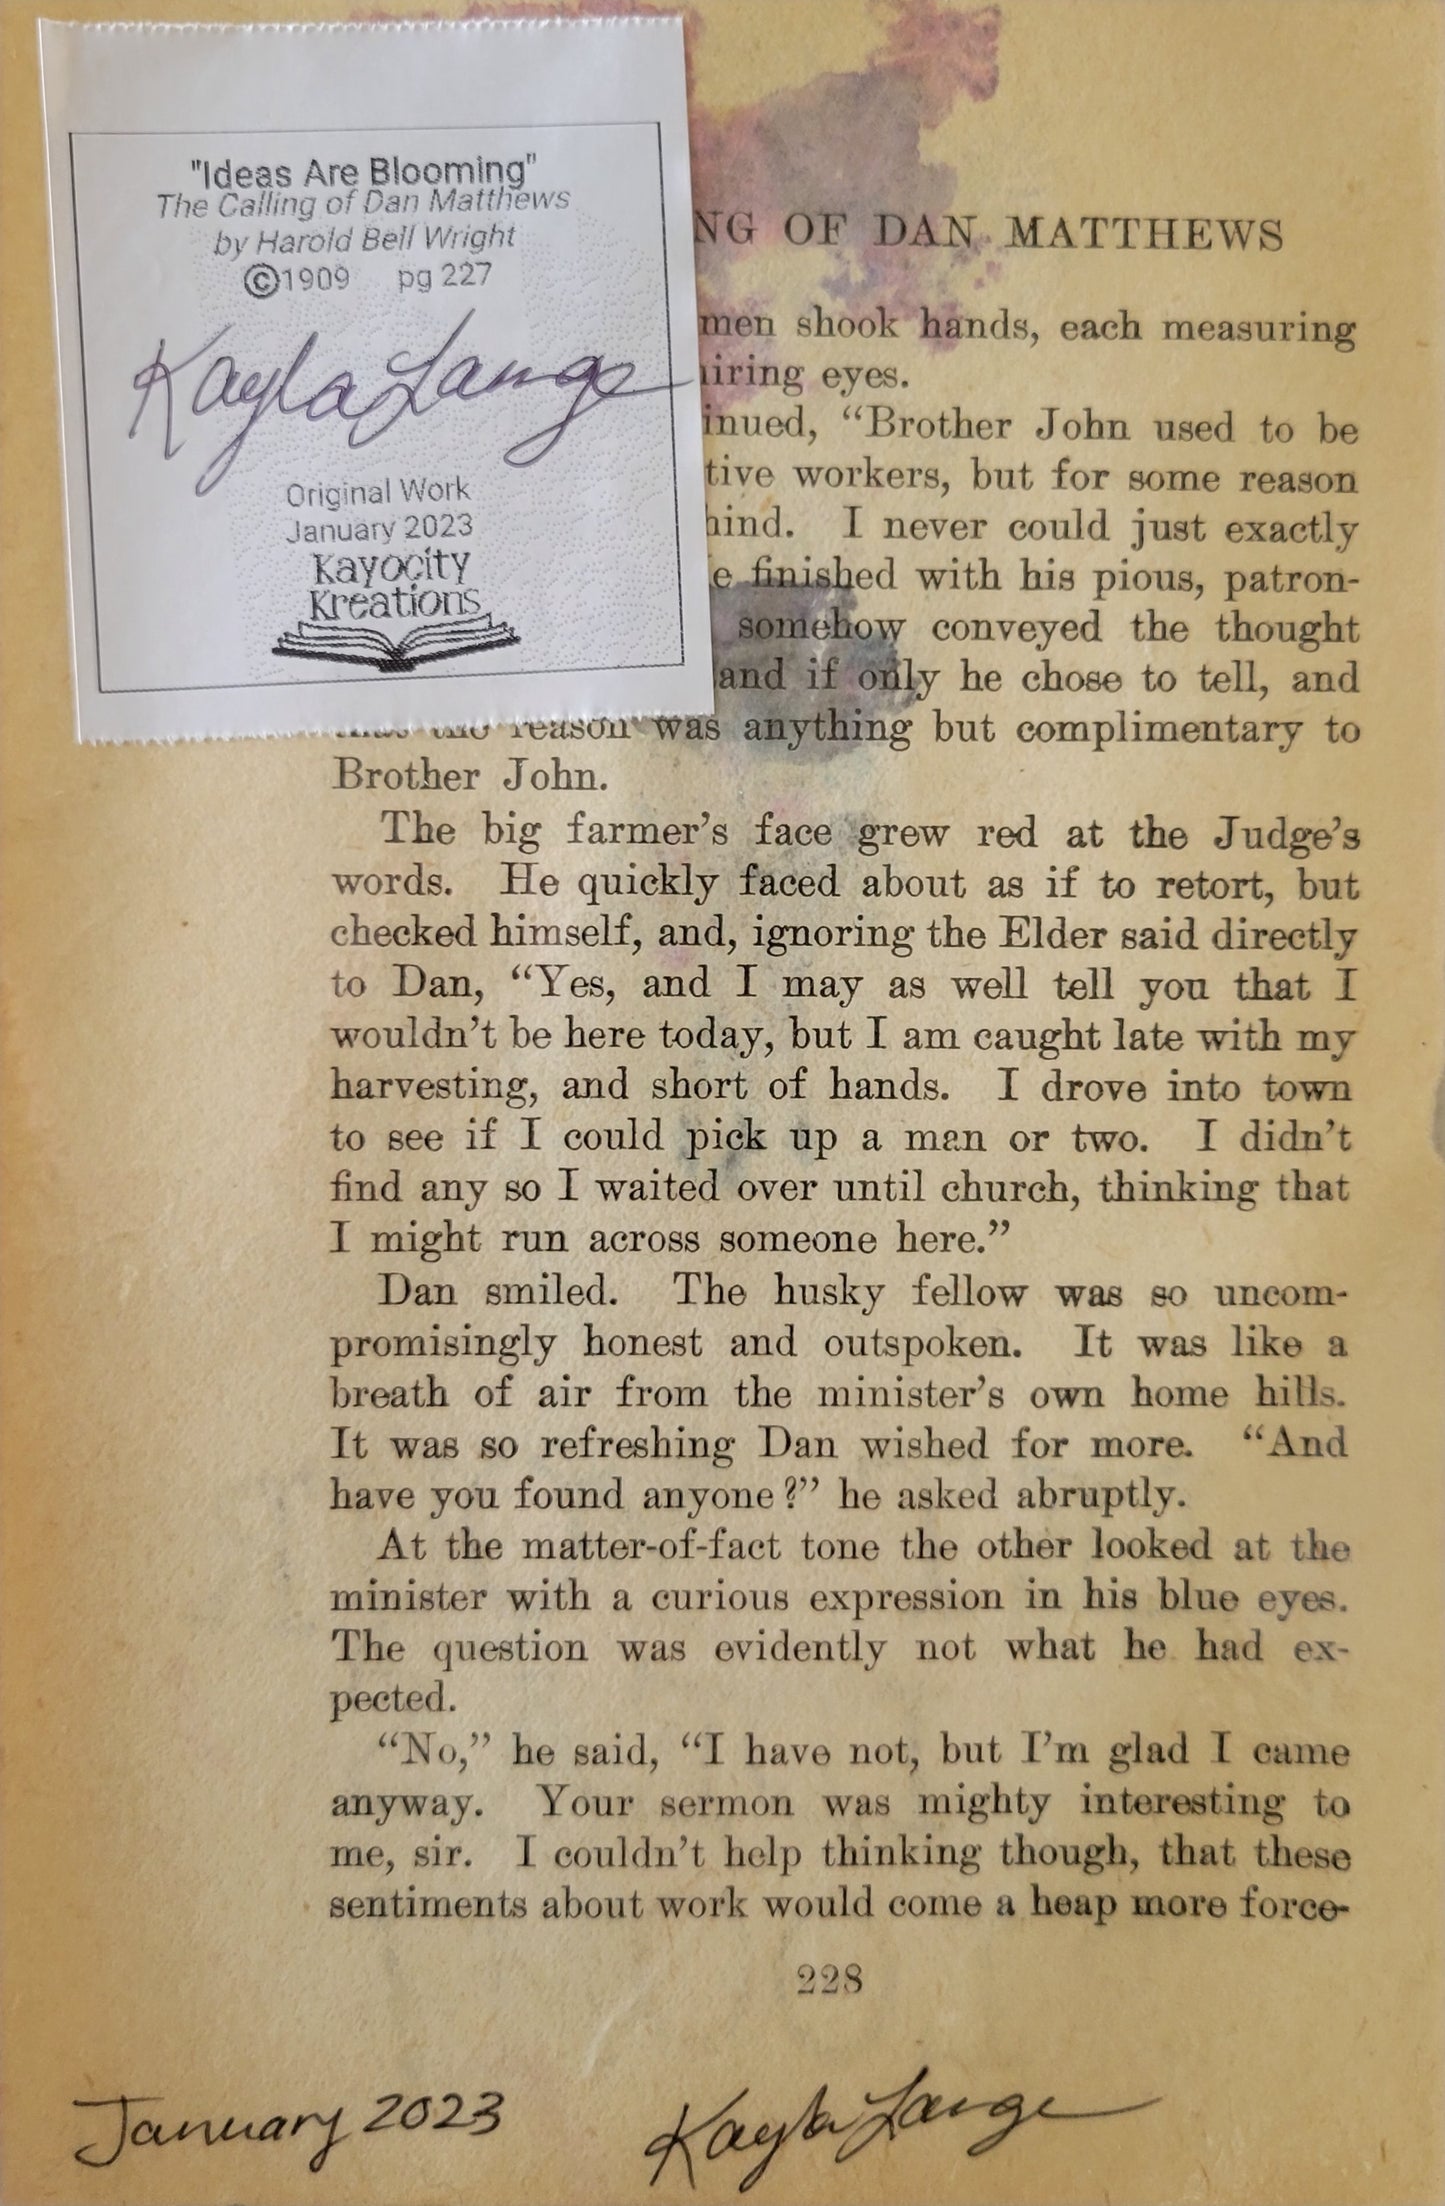 "Ideas Are Blooming"
The Calling of Dan Matthews
by Harold Bell Wright
©1909 pg 227
Kayla Lange
Original Work
January 2023
Kayocity
Kreations
NG OF DAN MATTHEWS
men shook hands, each measuring
iring eyes.
inued, “Brother John used to be
tive workers, but for some reason
hind. I never could just exactly
e finished with his pious, patron-
somehow conveyed the thought
and if only he chose to tell, and
reason was anything but complimentary to
Brother John.
The big farmer’s face grew red at the Judge’s
words. He quickly faced about as if to retort, but
checked himself, and, ignoring the Elder said directly
to Dan, “Yes, and I may as well tell you that I
wouldn’t be here today, but I am caught late with my
harvesting, and short of hands. I drove into town
to see if I could pick up a man or two. I didn’t
find any so I waited over until church, thinking that
I might run across someone here.”
Dan smiled. The husky fellow was so uncom-
promisingly honest and outspoken. It was like a
breath of air from the minister’s own home hills.
It was so refreshing Dan wished for more. “And
have you found anyone?” he asked abruptly.
At the matter-of-fact tone the other looked at the
minister with a curious expression in his blue eyes.
The question was evidently not what he had ex-
pected.
“No,” he said, “I have not, but I’m glad I came
anyway. Your sermon was mighty interesting to
me, sir. I couldn’t help thinking though, that these
sentiments about work would come a heap more force-
228
January 2023 Kayla Lange